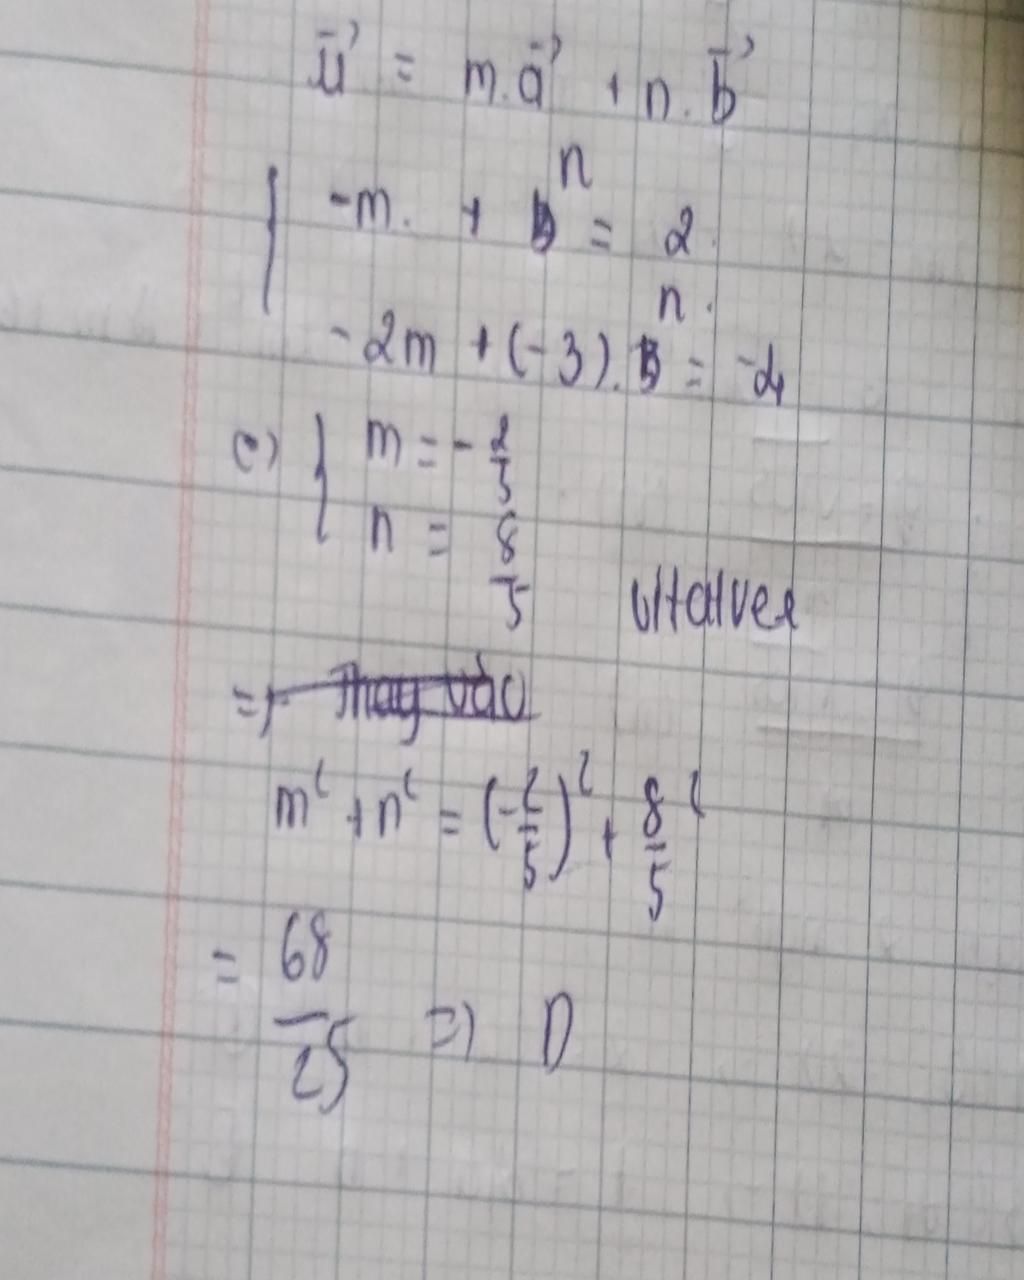 u⃗ = m.a⃗ + n.b⃗
-m. + n = 2.
-2m + (-3).n = -4
(=) { m = -2/5
n = 8/5
=> Thay vào
m² + n² = (-2/5)² + 8/5²
= 68/25 => D